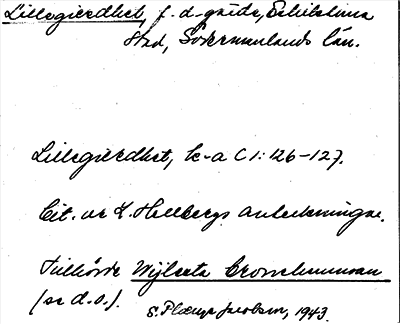 Lillegierdhet, f. d. gärde, Eskilstuna
stad, Södermanlands län.
Lillegierdhet, k-a C 1: 126-127.
Cit. ur L. Hellbergs anteckningar.
Tillhörde
(se d.o.).
S. Jacobson, 1943.